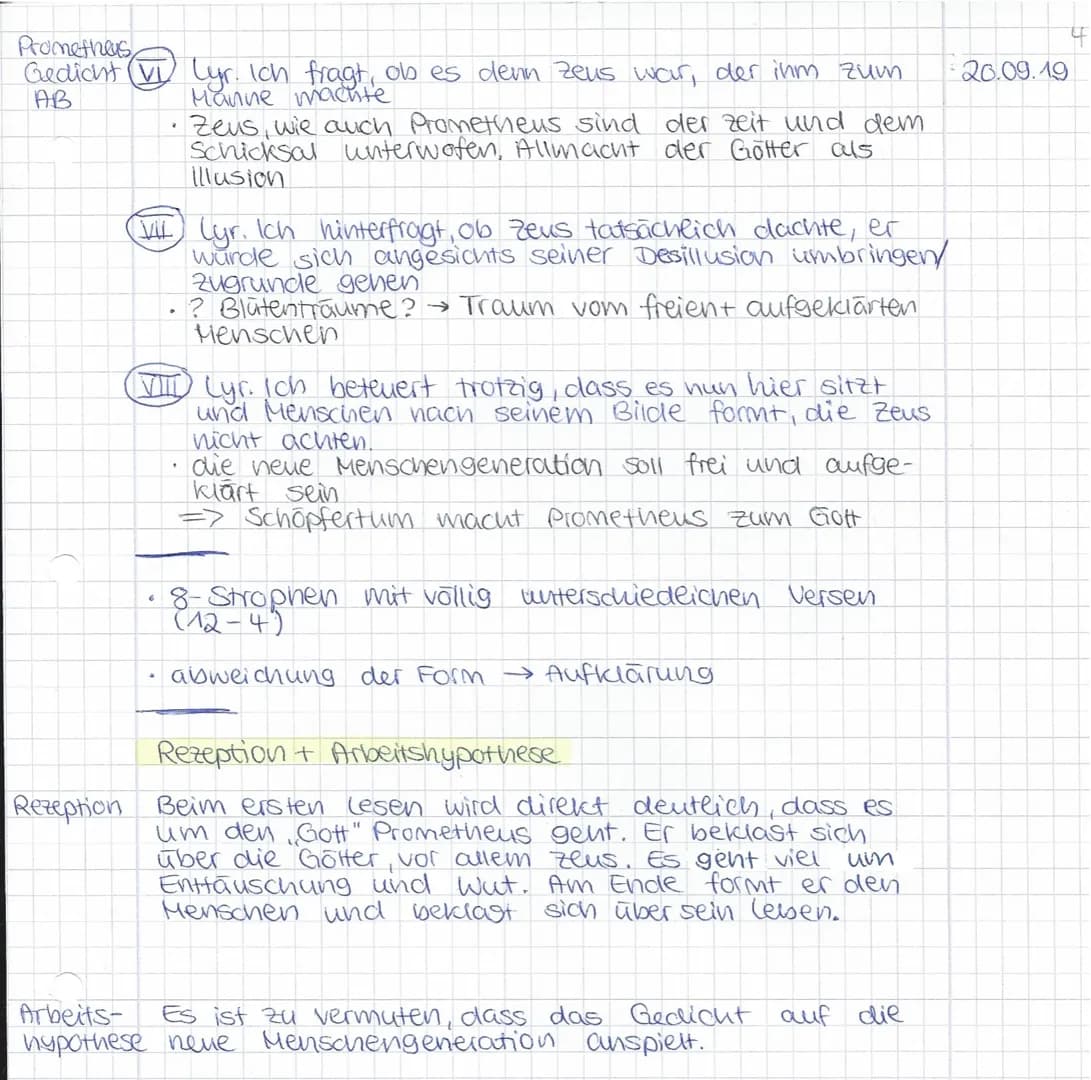 4
Prometheus
Gedicht VI Lyr. Ich fragt, ob es denn Zeus war, der ihm zum 20.09.19
AB Manne machte
· Zeus, wie auch Prometheus sind der Zeit und dem
Schicksal unterwofen, Allmacht der Götter als
Illusion
VII Lyr. Ich hinterfragt, ob Zeus tatsächlich dachte, er
würde sich angesichts seiner Desillusion umbringen/
zugrunde gehen
· ? Blütenträume? → Traum vom freien + aufgeklärten
Menschen
VIII Lyr. Ich beteuert trotzig, dass es nun hier sitzt
und Menschen nach seinem Bilde formt, die Zeus
nicht achten.
· die neue Menschengeneration soll frei und aufge-
klärt sein
=> Schöpfertum macht Prometheus zum Gott
· 8-Strophen mit völlig unterschiedlichen Versen
(12-4)
· abweichung der Form → Aufklärung
Rezeption + Arbeitshypothese
Rezeption Beim ersten Lesen wird direkt deutlich, dass es
um den „Gott" Prometheus geht. Er beklagt sich
über die Götter, vor allem Zeus. Es geht viel um
Enttäuschung und Wut. Am Ende formt er den
Menschen und beklagt sich über sein Leben.
Arbeits- Es ist zu vermuten, dass das Gedicht auf die
hypothese neue Menschengeneration anspielt.